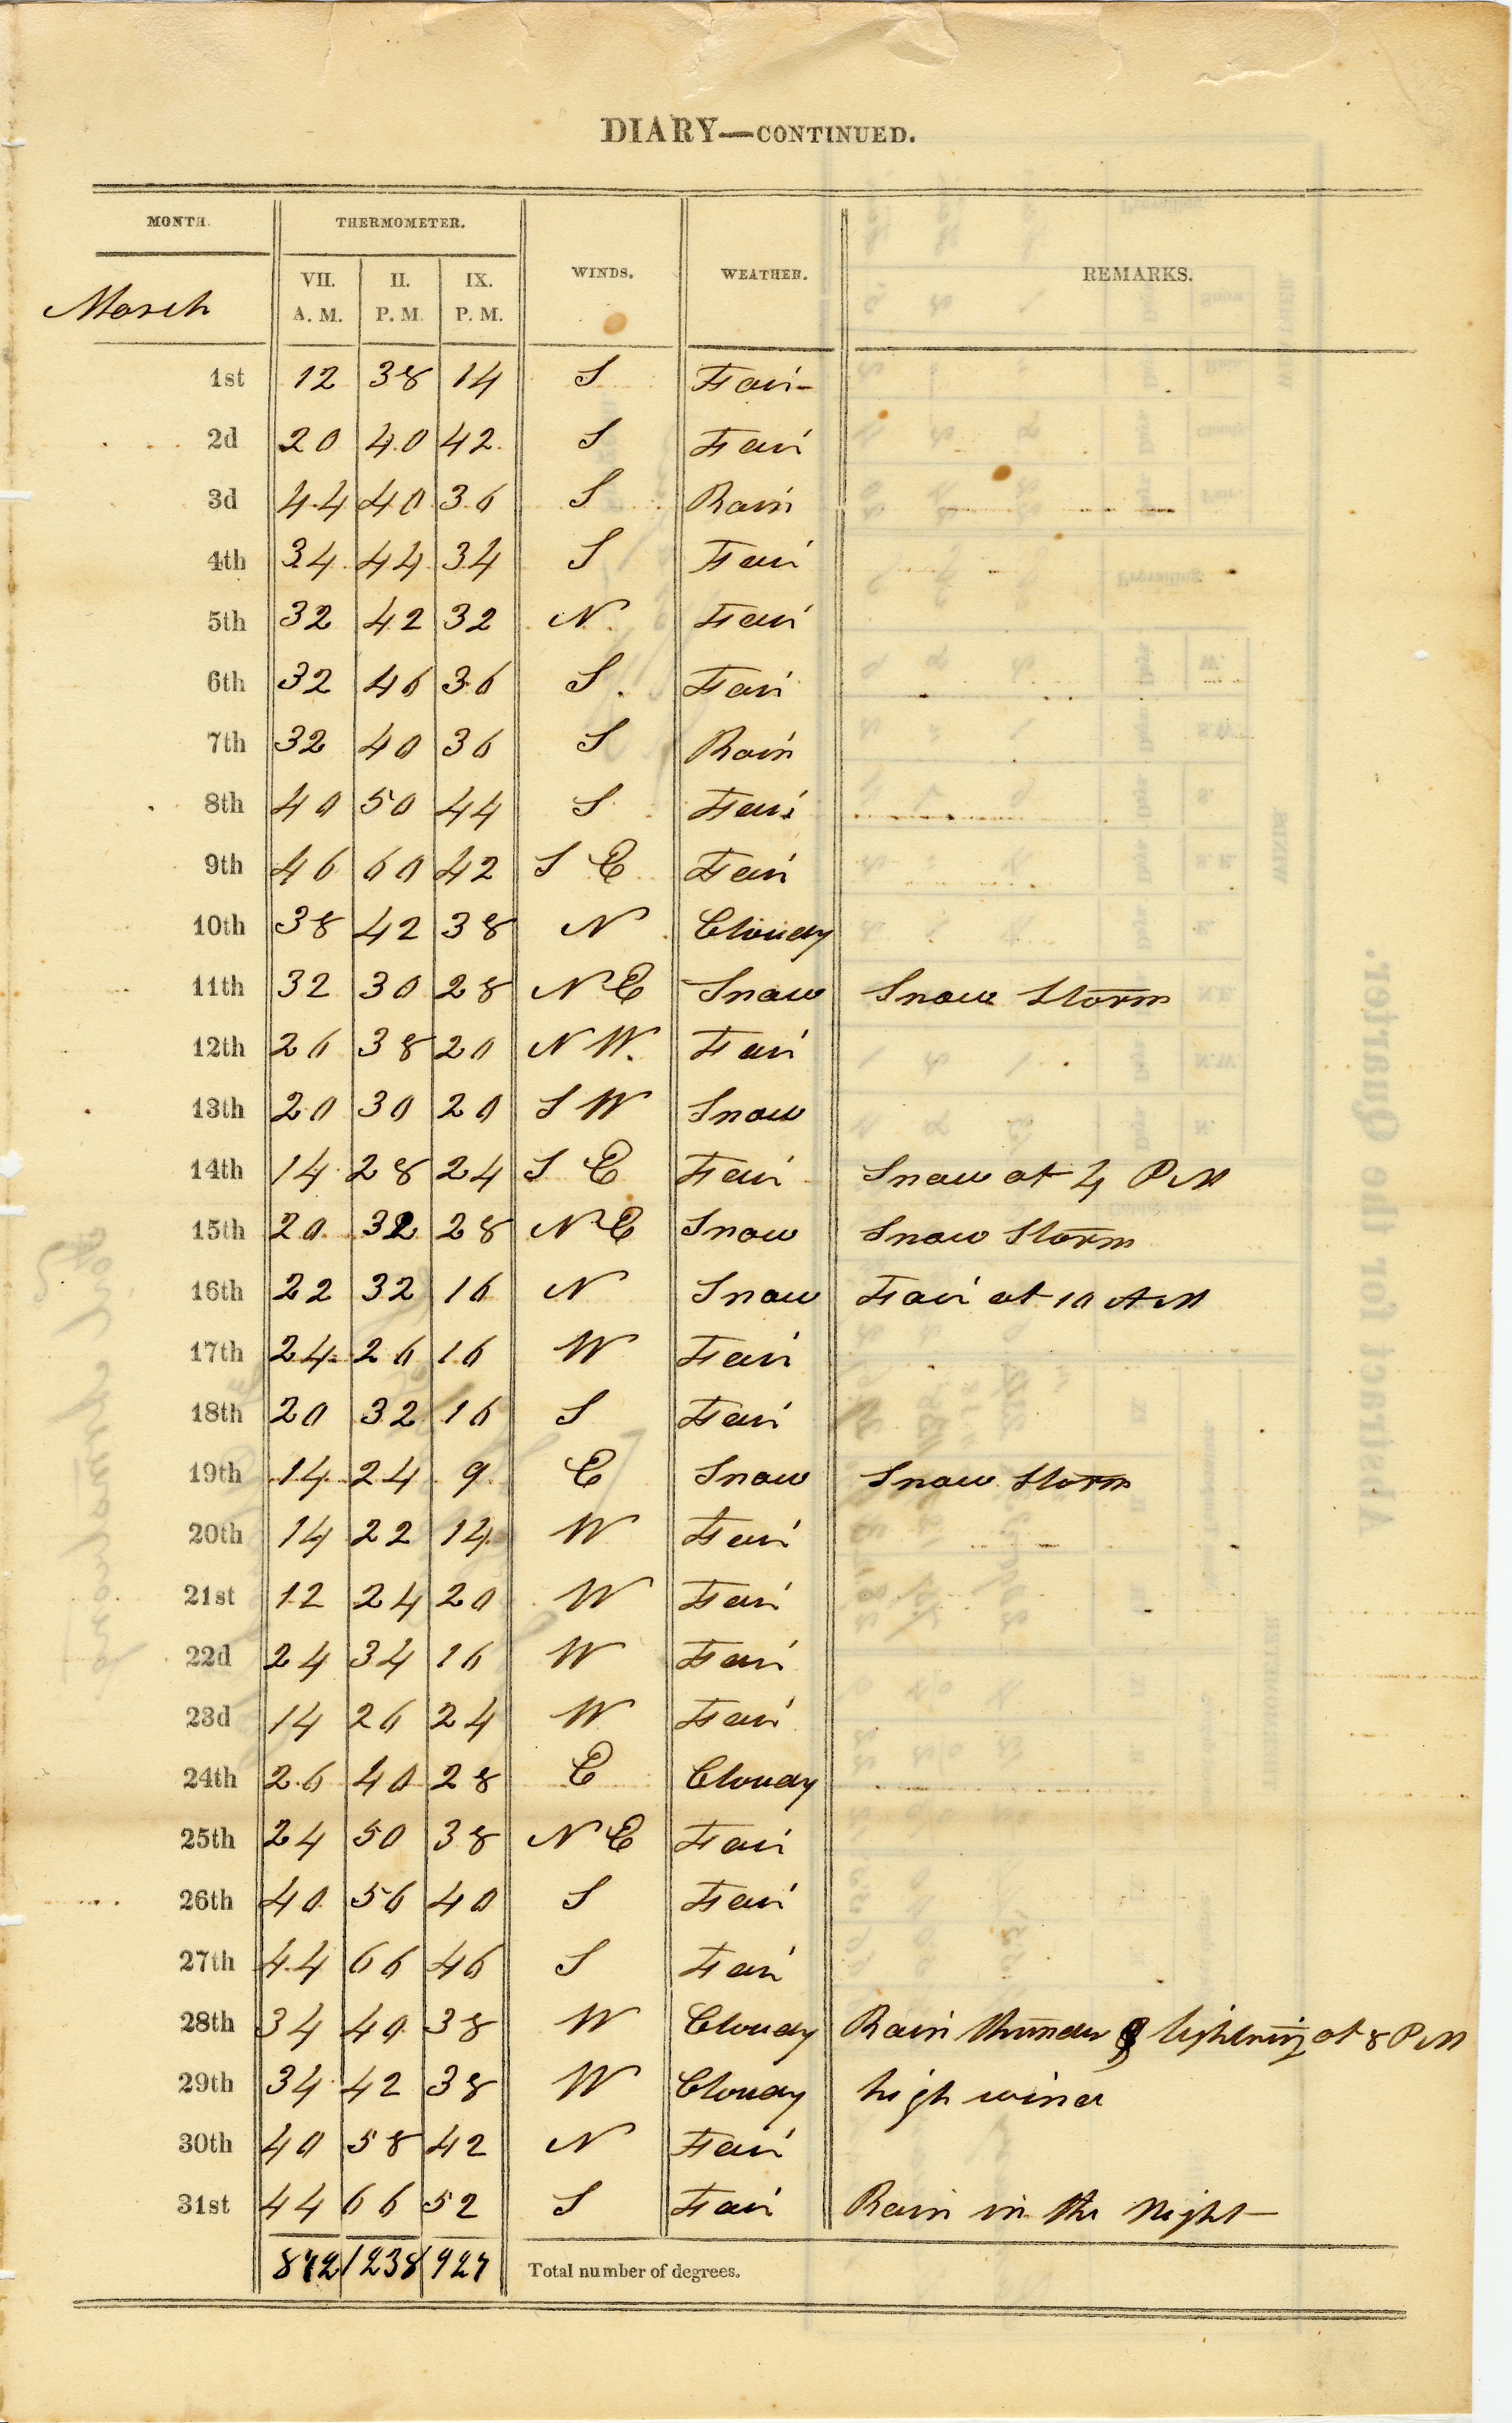 DIARY—CONTINUED.
MONTH. THERMOMETER. WINDS. WEATHER. REMARKS.
VII. II. IX.
A. M. P. M. P. M.
March
1st 12 38 14 S Fair
2d 20 40 42 S Fair
3d 44 40 36 S Rain
4th 34 44 34 S Fair
5th 32 42 32 N Fair
6th 32 46 36 S Fair
7th 32 40 36 S Rain
8th 40 50 44 S Fair
9th 46 60 42 S E Fair
10th 38 42 38 N Cloudy
11th 32 30 28 N E Snow Snow Storm
12th 26 38 20 N W. Fair
13th 20 30 20 S W Snow
14th 14 28 24 S E Fair Snow at 4 PM
15th 20 32 28 N E Snow Snow Storm
16th 22 32 16 N Snow Fair at 10 AM
17th 24 26 16 W Fair
18th 20 32 16 S Fair
19th 14 24 9 E Snow Snow Storm
20th 14 22 14 W Fair
21st 12 24 20 W Fair
22d 24 34 16 W Fair
23d 14 26 24 W Fair
24th 26 40 28 E Cloudy
25th 24 50 38 N E Fair
26th 40 56 40 S Fair
27th 44 66 46 S Fair
28th 34 40 38 W Cloudy Rain thunder & lightning at 8 PM
29th 34 42 38 W Cloudy high wind
30th 40 58 42 N Fair
31st 44 66 52 S Fair Rain in the Night
872 1238 927 Total number of degrees.
Abstract for the Quarter.